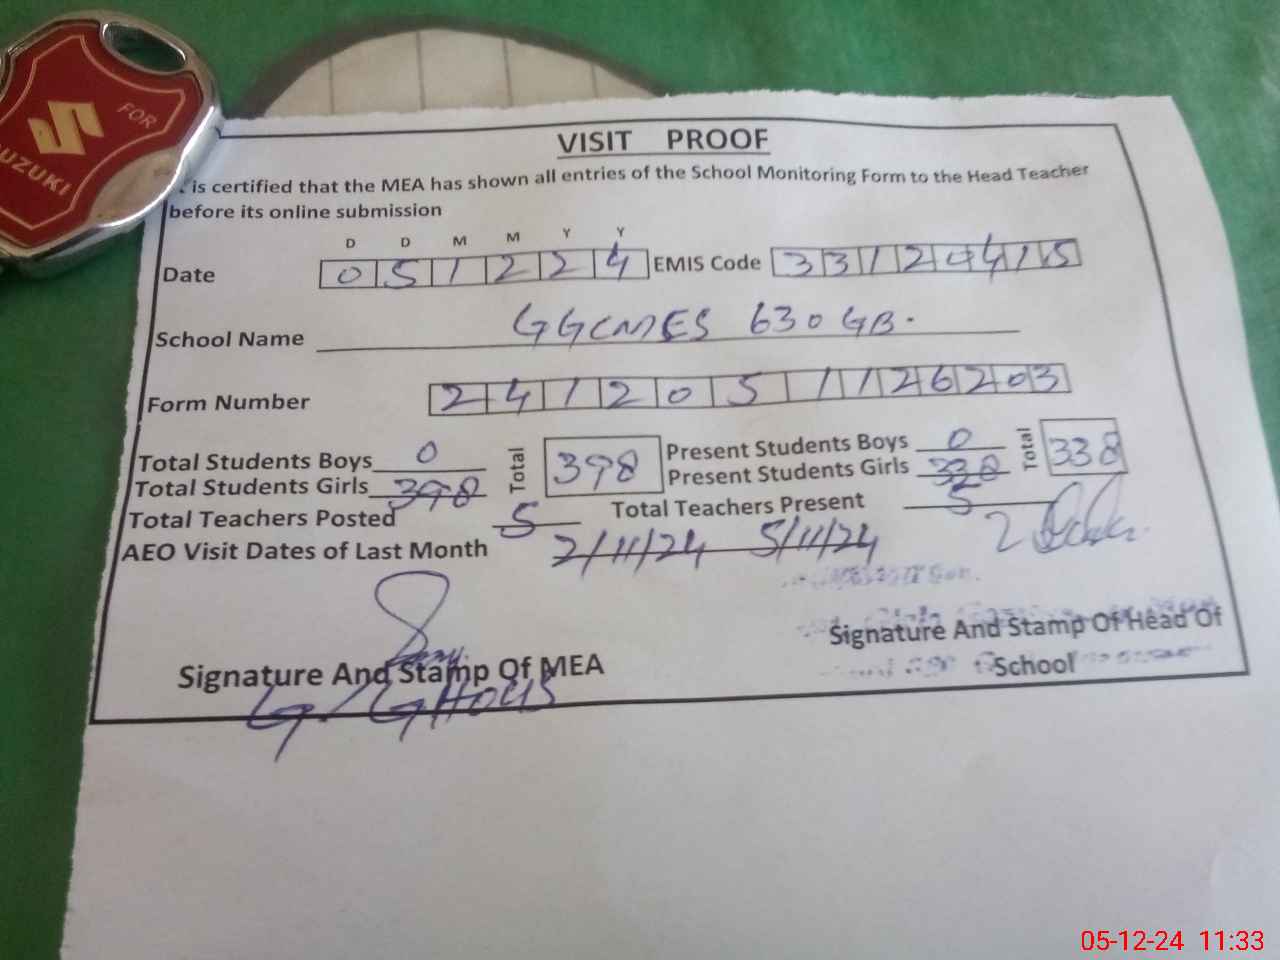 FOR
SUZUKI
VISIT PROOF
is certified that the MEA has shown all entries of the School Monitoring Form to the Head Teacher
before its online submission
D D M M Y Y
Date 0 5 1 2 2 4 EMIS Code 3 3 1 2 0 4 1 5
School Name GGCMES 630 GB.
Form Number 2 4 1 2 0 5 1 1 2 6 2 0 3
Total Students Boys 0 Total 398 Present Students Boys 0 Total 338
Total Students Girls 398 Present Students Girls 338
Total Teachers Posted 5 Total Teachers Present 5
AEO Visit Dates of Last Month 2/11/24 5/11/24
Signature And Stamp Of MEA
Signature And Stamp Of Head Of
School
G. GHOUS
05-12-24 11:33